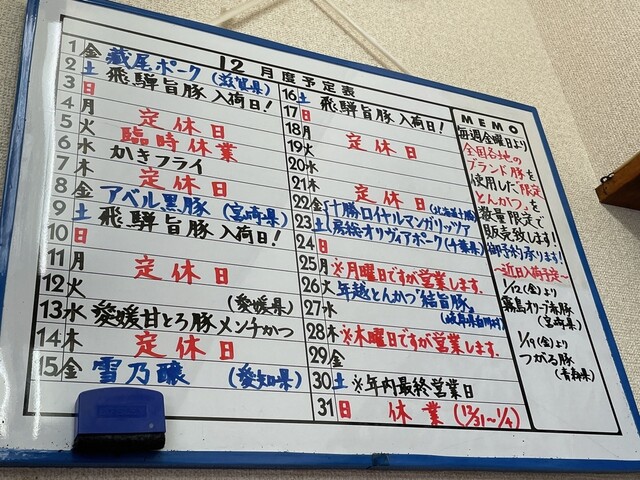 12月度予定表
1 金 藏尾ポーク(滋賀県)
2 土 飛騨旨豚 入荷日!
3 日
4 月 定休日
5 火 臨時休業
6 水 かきフライ
7 木 定休日
8 金 アベル黒豚(宮崎県)
9 土 飛騨旨豚 入荷日!
10 日
11 月 定休日
12 火 (愛媛県)
13 水 愛媛甘とろ豚メンチかつ
14 木 定休日
15 金 雪乃醸 (愛知県)
16 土 飛騨旨豚 入荷日!
17 日
18 月 定休日
19 火
20 水
21 木 定休日
22 金 十勝ロイヤルマンガリッツァ(北海道十勝)
23 土 房総オリヴィアポーク(千葉県)
24 日
25 月 ※月曜日ですが営業します。
26 火 年越とんかつ"結旨豚"
27 水 (岐阜県白川町)
28 木 ※木曜日ですが営業します。
29 金
30 土 ※年内最終営業日
31 日 休業(12/31~1/4)
MEMO
毎週金曜日より
全国各地の
ブランド豚を
使用した"限定
とんかつ"を
数量限定で
販売致します!
御予約承ります!
~近日入荷予定~
1/12(金)より
霧島オリーブ赤豚
(宮崎県)
1/19(金)より
つがる豚
(青森県)